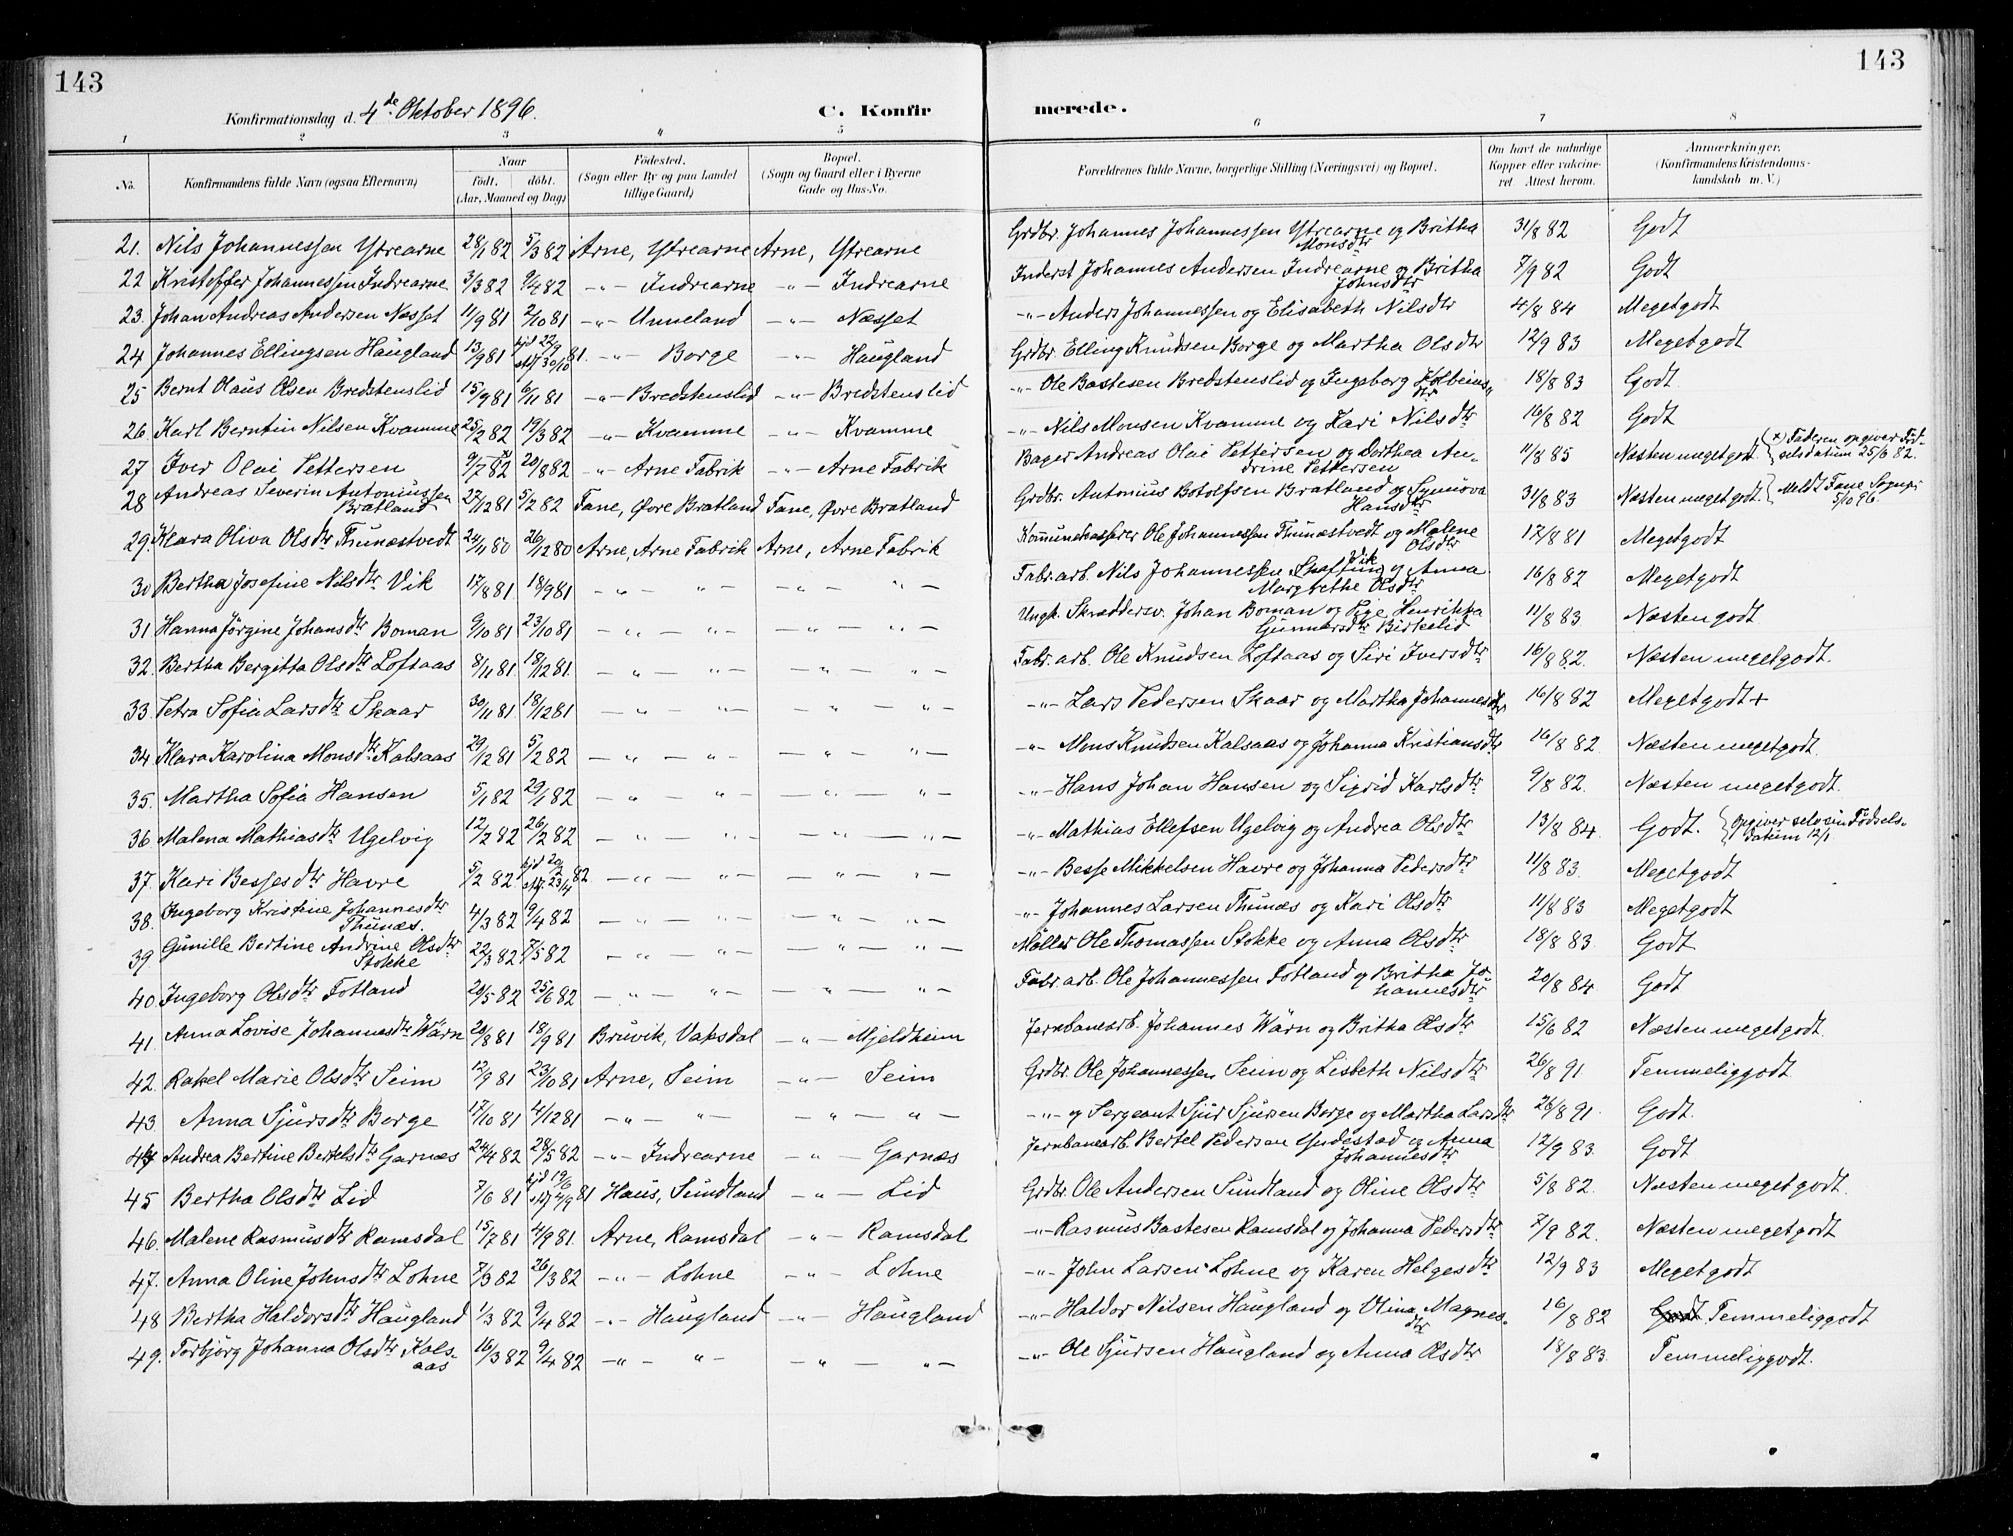 143
143
Konfirmationsdag d. 4de Oktober 1896.
C. Konfir
merede.
1 2 3 4 5 6 7 8
No. Konfirmandens fulde Navn (ogsaa Efternavn) Naar Födt, döbt. (Aar, Maaned og Dag) Födested. (Sogn eller By og paa Landet tillige Gaard) Bopæl. (Sogn og Gaard eller i Byerne Gade og Hus-No. Forældrenes fulde Navne, borgerlige Stilling (Næringsvei) og Bopæl. Om havt de naturlige Kopper eller vakcineret. Attest herom. Anmærkninger. (Konfirmandens Kristendomskundskab m. V.)
21. Nils Johannessen Ytrearne 28/1 82 5/3 82 Arne, Ytrearne Arne, Ytrearne Grdbr. Johannes Johannessen Ytrearne og Britha Monsdtr 31/8 82 Godt
22 Kristoffer Johannessen Indrearne 3/3 82 9/4 82 -„- Indrearne -„- Indrearne Inderst Johannes Andersen Indrearne og Britha Johnsdtr 7/9 82 Godt
23. Johan Andreas Andersen Næsset 11/9 81 2/10 81 -„- Unneland -„- Næsset -„- Anders Johannessen og Elisabeth Nilsdtr 4/8 84 Megetgodt
24 Johannes Ellingsen Haugland 13/9 81 hjd 22/9 stdf 30/10 81. -„- Borge -„- Haugland Grdbr. Elling Knudsen Borge og Martha Olsdtr 12/9 83 Megetgodt
25 Bernt Olaus Olsen Bredstenslid 15/9 81 6/11 81 -„- Bredstenslid -„- Bredstenslid -„- Ole Bastesen Bredstenslid og Ingeborg Kolbeinsdtr 18/8 83 Godt.
26 Karl Berntin Nilsen Kvamme 25/2 82 19/3 82 -„- Kvamme -„- Kvamme -„- Nils Monsen Kvamme og Kari Nilsdtr 16/8 82 Godt
27 Iver Olai Pettersen 9/7 82 20/8 82 -„- Arne Fabrik -„- Arne Fabrik Bager Andreas Olai Pettersen og Dorthea Andrine Pettersen 11/8 85 Næsten megetgodt. (x) Faderen opgiver Fødselsdatum 25/6 82.
28 Andreas Severin Antoniussen Bratland 27/12 81 5/2 82 Fane, Øvre Bratland Fane, Øvre Bratland Grdbr. Antonius Botolfsen Bratland og Synnøva Hansdtr 31/8 83 Næsten megetgodt. Meldt Fane Sognepr. 5/10 96.
29. Klara Oliva Olsdtr Thunæstvedt 24/11 80 26/12 80 Arne, Arne Fabrik Arne, Arne Fabrik Kommunekasserer Ole Johannessen Thunæstvedt og Malene Olsdtr 17/8 81 Megetgodt
30 Bertha Josefine Nilsdtr Vik 17/8 81 18/9 81 -„- „- -„- „- Fabr. arb. Nils Johannessen Vik og Anna Margrethe Olsdtr 16/8 82 Megetgodt
31 Hanna Jörgine Johansdtr Boman 9/10 81 23/10 81 -„- „- -„- „- Ungk. Skræddersv. Johan Boman og Pige Henrikka Gunnarsdtr Birkelid 11/8 83. Næsten godt
32. Bertha Bergitta Olsdtr Loftaas 8/11 81 18/12 81. -„- „- -„- „- Fabr. arb. Ole Knudsen Loftaas og Siri Iversdtr 16/8 82. Næsten megetgodt.
33. Petra Sofia Larsdtr Skaar 30/11 81. 18/12 81 -„- „- -„- „- -„- Lars Pedersen Skaar og Martha Johannesdtr 16/8 82 Megetgodt +
34 Klara Karolina Monsdtr Kalsaas 29/12 81 5/2 82 -„- „- -„- „- -„- Mons Knudsen Kalsaas og Johanna Kristiansdtr 16/8 82. Næsten megetgodt.
35. Martha Sofia Hansen 5/1 82 29/1 82 -„- „- -„- „- -„- Hans Johan Hansen og Sigrid Karlsdtr 9/8 82. Næsten megetgodt.
36 Malena Mathiasdtr Ugelvig 12/2 82 26/2 82 -„- „- -„- „- -„- Mathias Ellefsen Ugelvig og Andrea Olsdtr 13/8 84. Godt. Opgiver selv sin Fødselsdatum 12/1
37. Kari Bessesdtr Havre 5/2 82 hjd 20/2 stdf. 23/4 82 -„- „- -„- „- -„- Besse Mikkelsen Havre og Johanna Pedersdtr 11/8 83. Megetgodt
38. Ingeborg Kristine Johannesdtr Thunæs. 4/3 82 9/4 82 -„- „- -„- „- -„- Johannes Larsen Thunæs og Kari Olsdtr 11/8 83 Megetgodt
39 Gunille Bertine Andrine Olsdtr Stokke 22/3 82 7/5 82 -„- „- -„- „- Møller Ole Thomassen Stokke og Anna Olsdtr 18/8 83. Godt
40 Ingeborg Olsdtr Totland 20/5 82 25/6 82 -„- „- -„- „- Fabr. arb. Ole Johannessen Totland og Britha Johannesdtr 20/8 84 Godt
41. Anna Lovise Johannesdtr Wärn 20/8 81 18/9 81 Bruvik, Vaksdal -„- Mjeldheim Jernbanearb. Johannes Wärn og Britha Olsdtr 15/6 82 Næsten megetgodt.
42. Rakel Marie Olsdtr Seim 12/9 81 23/10 81 Arne, Seim -„- Seim Grdbr. Ole Johannessen Seim og Lisbeth Nilsdtr. 26/8 91 Temmeliggodt
43 Anna Sjursdtr Borge 17/10 81 4/12 81 -„- „- -„- „- -„- og Sergeant Sjur Sjursen Borge og Martha Larsdtr 26/8 91. Godt.
44 Andrea Bertine Bertelsdtr Garnæs 24/4 82 28/5 82 -„- Indrearne -„- Garnæs Jernbanearb. Bertel Pedersen Yndestad og Anna Johannesdtr 12/9 83. Godt
45 Bertha Olsdtr Lid 7/6 81 hjd 19/6 stdf 4/9 81 Haus, Sundland -„- Lid Grdbr. Ole Andersen Sundland og Oline Olsdtr 5/8 82. Næsten megetgodt.
46. Malene Rasmusdtr Ramsdal 15/7 81 4/9 81. Arne, Ramsdal -„- Ramsdal -„- Rasmus Bastesen Ramsdal og Johanna Pedersdtr 7/9 82. Næsten megetgodt
47. Anna Oline Johnsdtr Lohne 7/3 82 26/3 82 -„- Lohne -„- Lohne -„- John Larsen Lohne og Karen Helgesdtr 12/9 83 Megetgodt
48 Bertha Haldorsdtr Haugland 1/3 82 9/4 82 -„- Haugland -„- Haugland -„- Haldor Nilsen Haugland og Olina Magnesdtr 16/8 82 Godt Temmeliggodt
49. Torbjörg Johanna Olsdtr Kalsaas 16/3 82 9/4 82 -„- „- -„- „- -„- Ole Sjursen Haugland og Anna Olsdtr 18/8 83. Temmeliggodt.